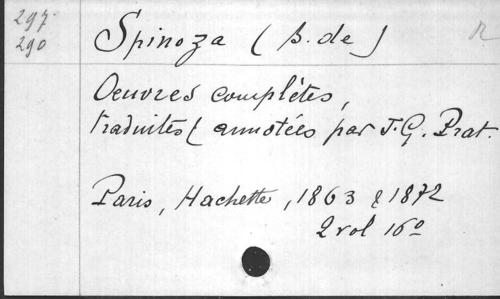 297.
290
Spinoza (B. de) R
Oeuvres complètes,
traduites & annotées par J. G. Prat.
Paris, Hachette, 1863 & 1872
2 vol 16º